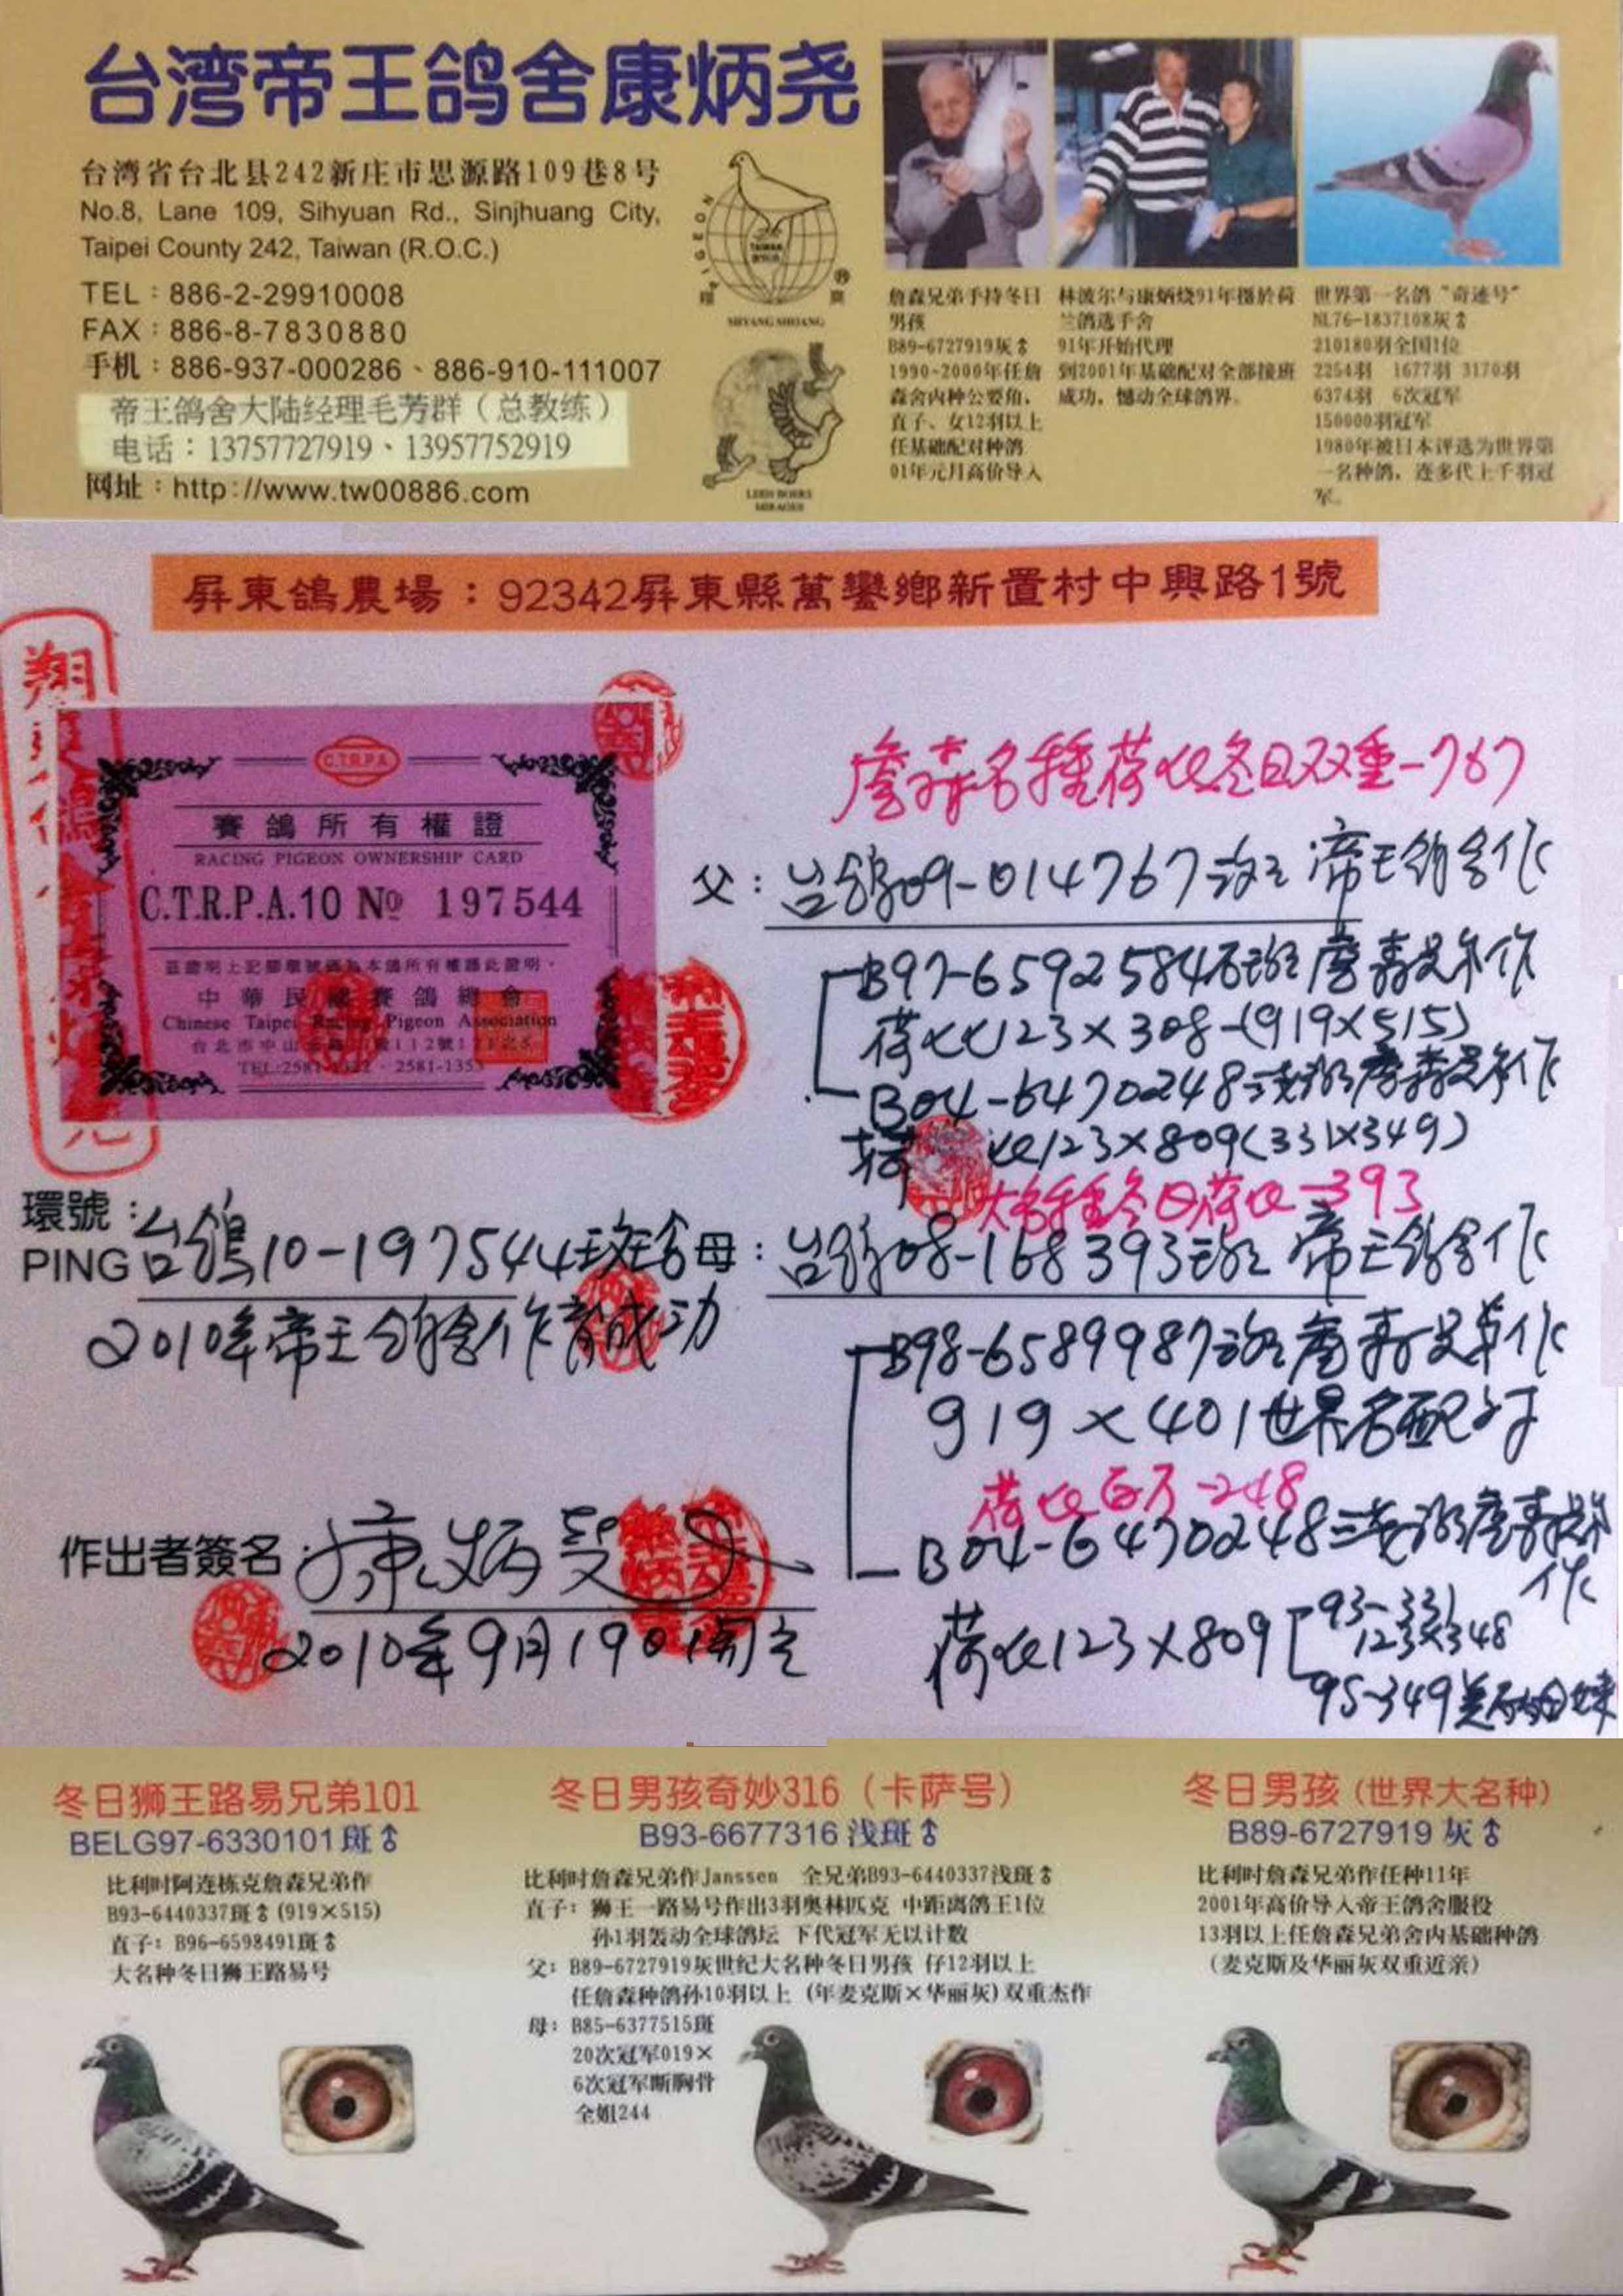 台湾帝王鸽舍康炳尧
台湾省台北县242新庄市思源路109巷8号
No.8, Lane 109, Sihyuan Rd., Sinjhuang City,
Taipei County 242, Taiwan (R.O.C.)
TEL：886-2-29910008
FAX：886-8-7830880
手机：886-937-000286、886-910-111007
帝王鸽舍大陆经理毛芳群（总教练）
电话：13757727919、13957752919
网址：http://www.tw00886.com
PIGEON
TAIWAN
翔
SHYANG SHOANG
®
詹森兄弟手持冬日
男孩
B89-6727919灰♂
1990-2000年任詹
森舍内种公要角，
直子、女12羽以上
任基础配对种鸽
01年元月高价导入
林波尔与康炳烧91年摄於荷
兰鸽选手舍
91年开始代理
到2001年基础配对全部接班
成功，憾动全球鸽界。
世界第一名鸽“奇迹号”
NL76-1837108灰♂
210180羽全国1位
2254羽 1677羽 3170羽
6374羽 6次冠军
150000羽冠军
1980年被日本评选为世界第
一名种鸽，连多代上千羽冠
军。
屏東鴿農場：92342屏東縣萬巒鄉新置村中興路1號
翔
C.T.R.P.A
賽鴿所有權證
RACING PIGEON OWNERSHIP CARD
C.T.R.P.A.10 № 197544
茲證明上記腳環號碼為本鴿所有權謹此證明。
中華民國賽鴿總會
Chinese Taipei Racing Pigeon Association
TEL:2581-1322．2581-1353
詹森名種荷比冬日双重-767
父：台鴿09-014767斑 帝王鸽舍作
B97-6592584石斑 詹森兄弟作
荷比123×308-(919×515)
B04-6470248 詹森兄弟作
荷比123×809(331×349)
大名種冬日荷比-393
環號：
PING 台鴿10-197544斑
母：台鴿08-168393斑 帝王鸽舍作
2010年帝王鸽舍作育成功
B98-6589987斑 詹森兄弟作
919×401世界名配对
荷比百万-248
B04-6470248 詹森兄弟作
荷比123×809
93-331
123×348
95-349
作出者簽名：康炳堯
2010年9月19日
冬日狮王路易兄弟101
BELG97-6330101斑♂
比利时阿连栋克詹森兄弟作
B93-6440337斑♂(919×515)
直子：B96-6598491斑♂
大名种冬日狮王路易号
冬日男孩奇妙316（卡萨号）
B93-6677316 浅斑♂
比利时詹森兄弟作Janssen 全兄弟B93-6440337浅斑♂
直子：狮王一路易号作出3羽奥林匹克 中距离鸽王1位
孙1羽轰动全球鸽坛 下代冠军无以计数
父：B89-6727919灰世纪大名种冬日男孩 仔12羽以上
任詹森种鸽孙10羽以上（年麦克斯×华丽灰)双重杰作
母：B85-6377515斑
20次冠军019×
6次冠军断胸骨
全姐244
冬日男孩（世界大名种）
B89-6727919 灰♂
比利时詹森兄弟作任种11年
2001年高价导入帝王鸽舍服役
13羽以上任詹森兄弟舍内基础种鸽
（麦克斯及华丽灰双重近亲）